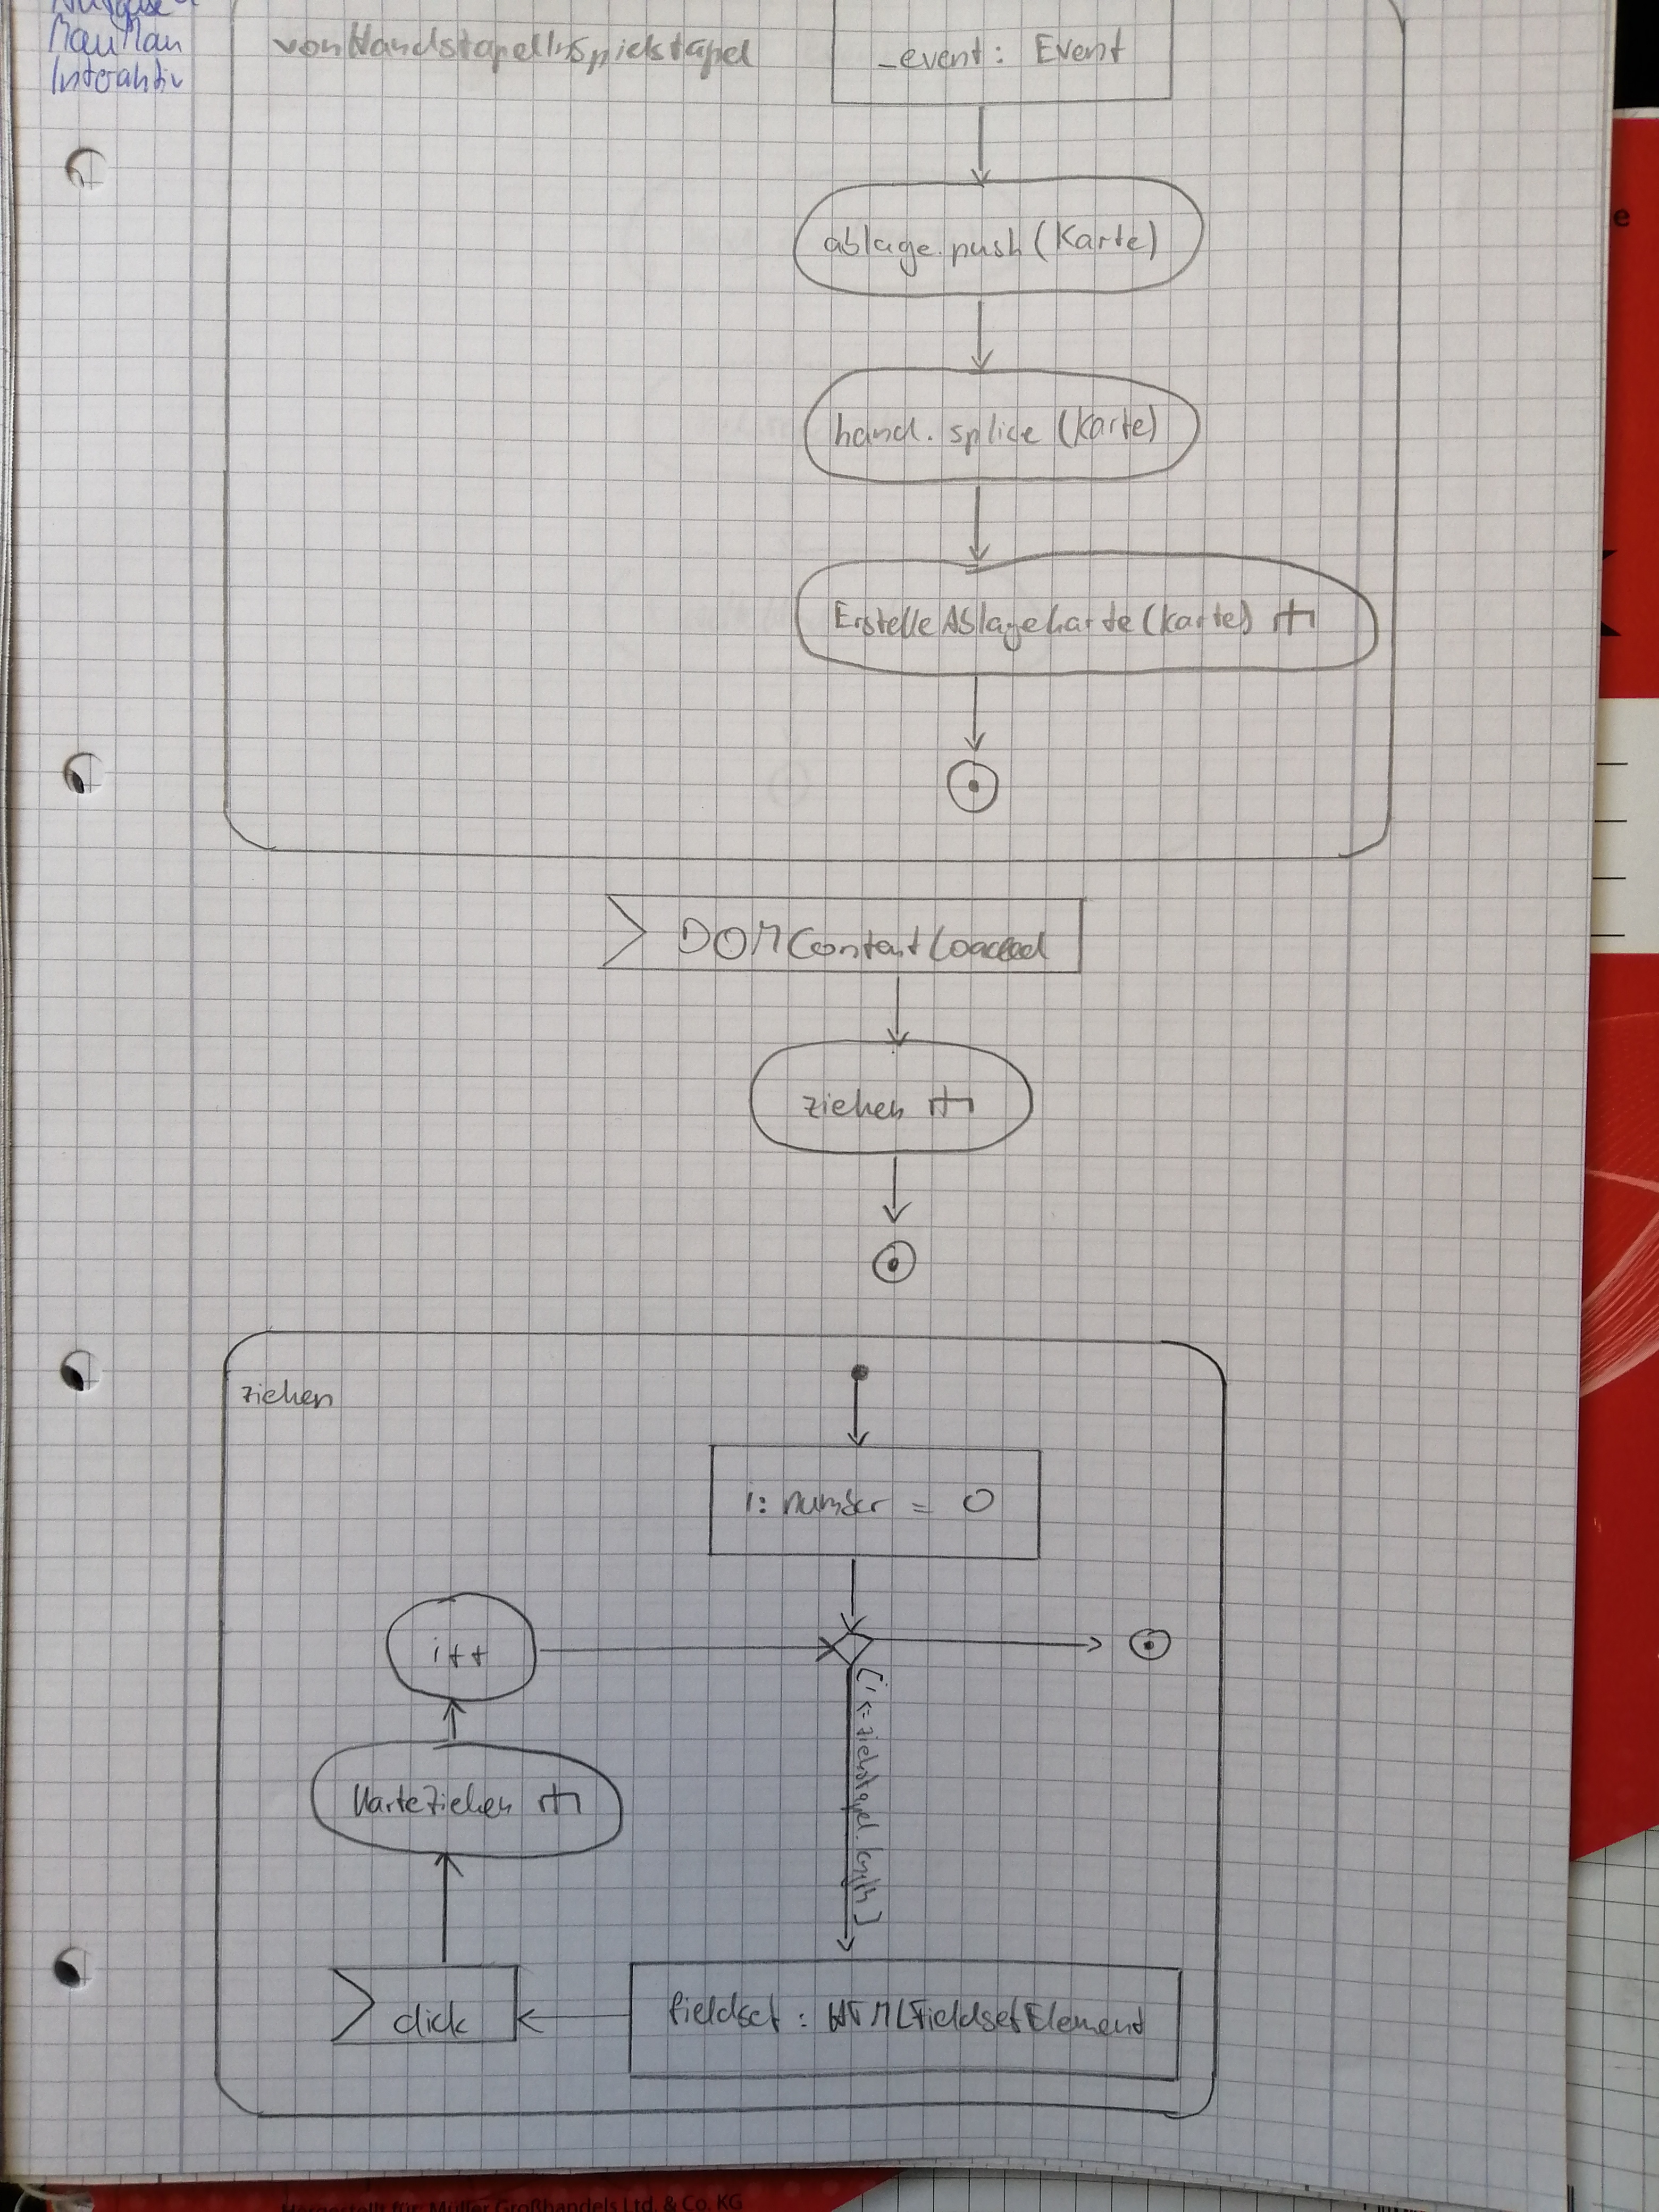 Aufgabe
MauMau
Interaktiv
vonHandstapelInSpielstapel
_event: Event
ablage.push(Karte)
hand.splice(Karte)
ErstelleAblagekarte(Karte)
DOMContentLoaded
ziehen
ziehen
i: number = 0
i++
[i <= ziehstapel.length]
KarteZiehen
click
fieldset: HTMLFieldsetElement
e
Hergestellt für: Müller Großhandels Ltd. & Co. KG